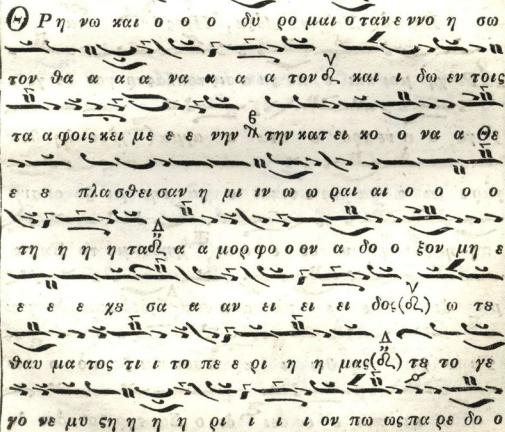 Θ Ρη νω και ο ο ο δυ ρο μαι ο ταν ε ννο η σω
τον θα α α α να α α α τον και ι δω εν τοις
τα α φοις κει με ε ε νην την κατ ει κο ο να α Θε
ε ε πλα σθει σαν η μι ιν ω ω ραι αι ο ο ο ο
τη η η η τα α α μορ φο ο ον α δο ο ξον μη ε
ε ε ε χε σα α αν ει ει ει ει δος ω τε
θαυ μα τος τι ι το πε ε ρι η η μας τε το γε
γο νε μυ ςη η η η ρι ι ι ι ον πω ως πα ρε δο ο